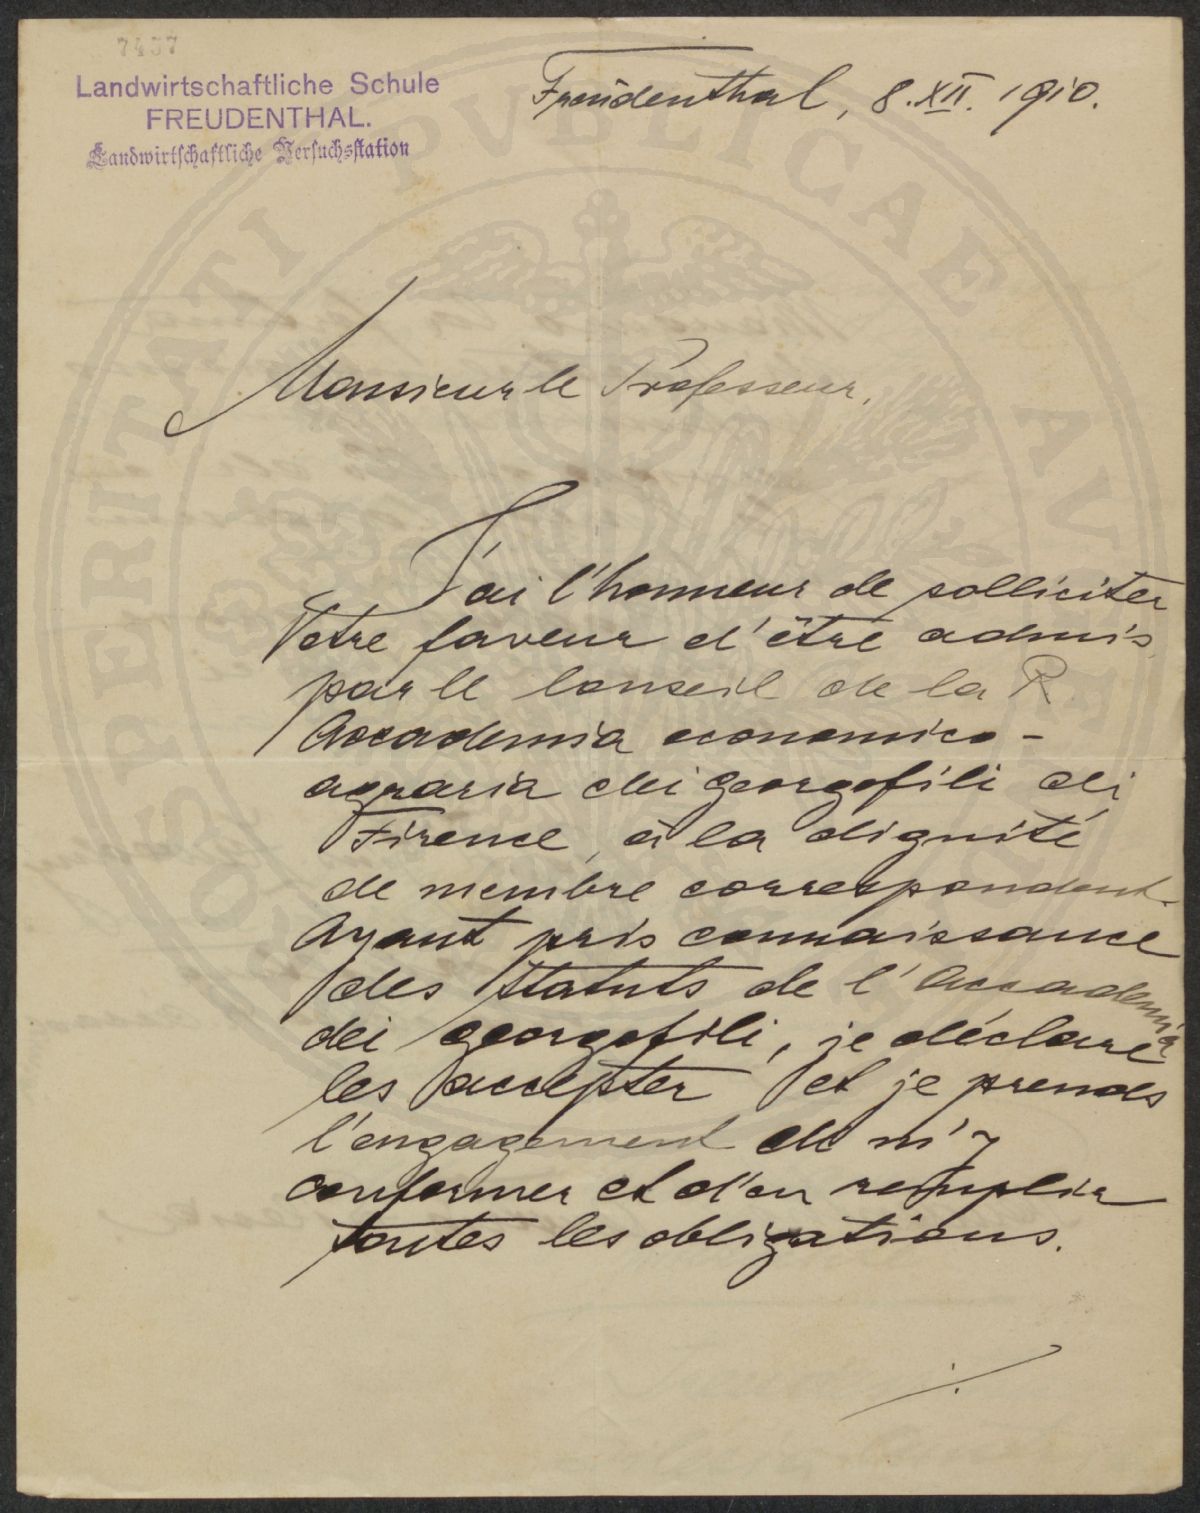 7437
Landwirtschaftliche Schule
FREUDENTHAL.
Landwirtschaftliche Versuchsstation
Freudenthal, 8. XII. 1910.
Monsieur le Professeur,
J'ai l'honneur de solliciter
Votre faveur d'être admis
par le Conseil de la R.
Accademia economico-
agraria dei georgofili di
Firence, à la dignité
de membre correspondent.
Ayant pris connaissance
des Statuts de l'Accademia
dei georgofili, je déclare
les accepter et je prends
l'engagement de m'y
conformer et d'en remplir
toutes les obligations.
./.
PROSPERITATI PVBLICAE AVGENDAE